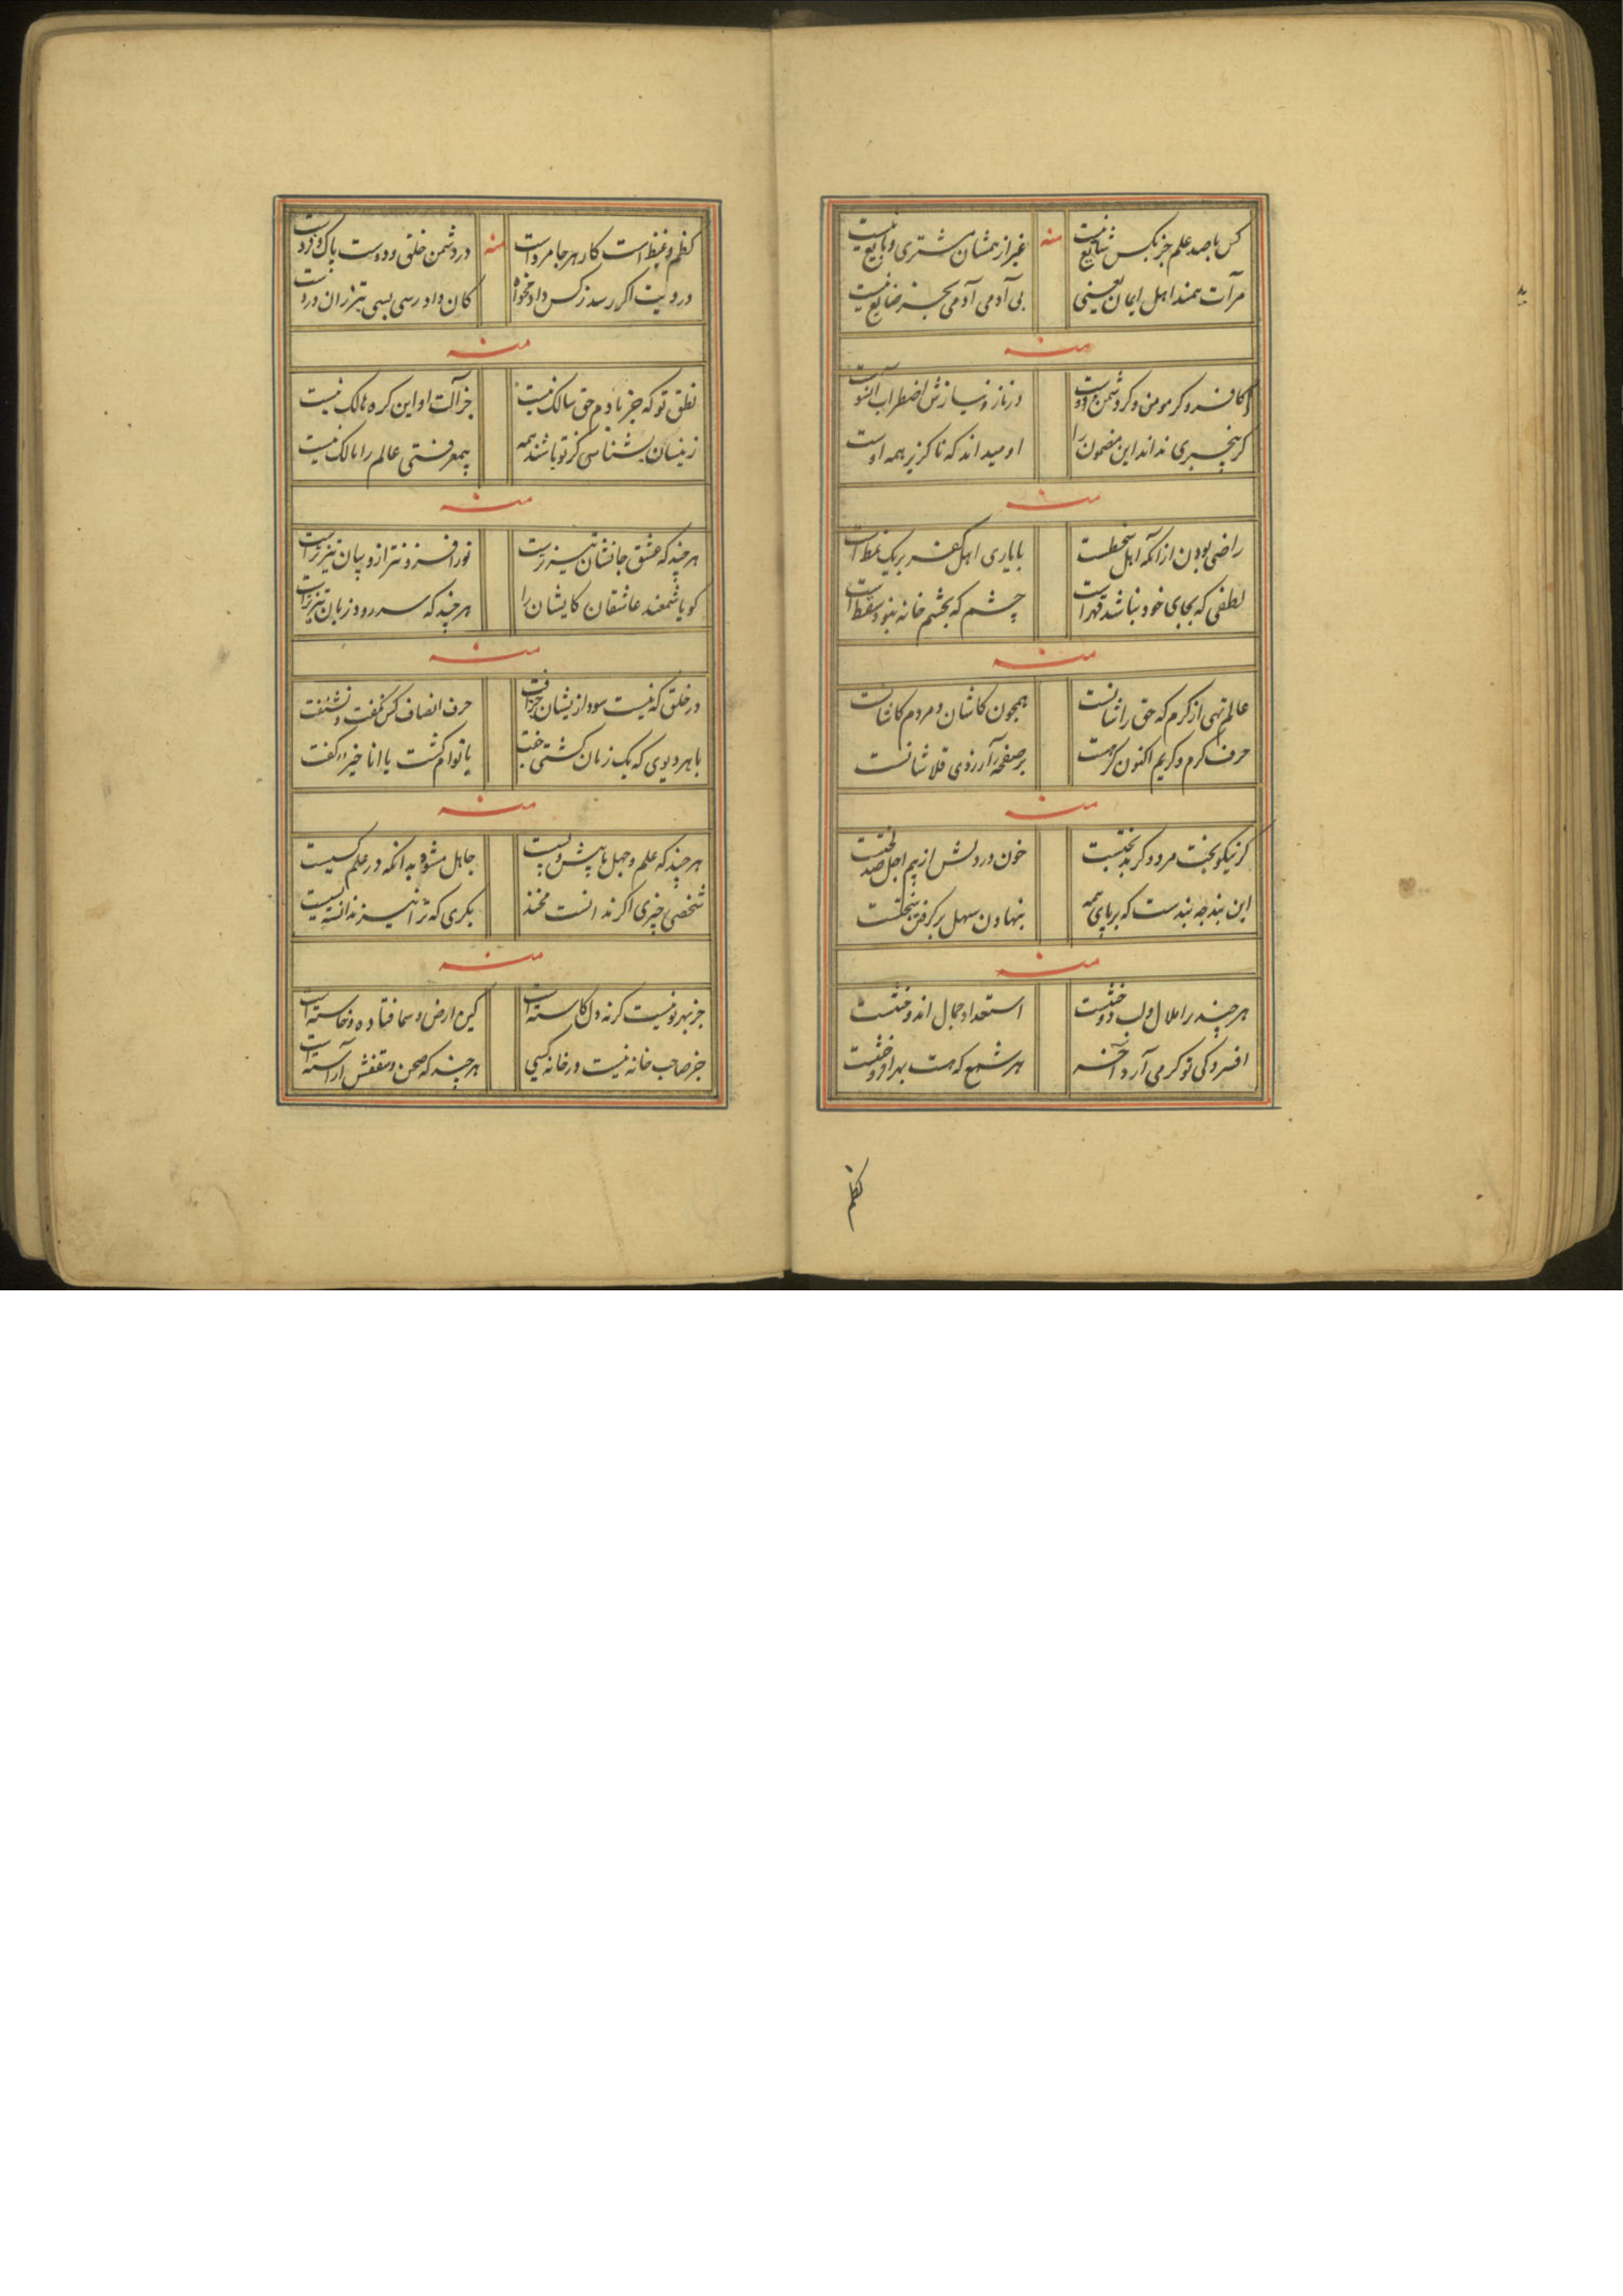 کس با صد علم جز بکس شایع نیست منه غیر از همشان مشتری و بایع نیست
مرآت همند اهل ایمان یعنی بی آدمی آدمی بجز ضایع نیست
منه
کافر و کر مومن و کر دشمن و دوست در ناز و نیازش اضطراب آنسوست
کر بیخبری نداند این مضمون را او میداند که ناکزیر همه اوست
منه
راضی بودن ازانکه اهل سخطست با یاری اهل کفر بریک نمط است
لطفی که بجای خود نباشد قهر است چشم که بچشم خانه نبود سقط است
منه
عالم تهی از کرم که حق را شانست همچون کاشان و مردم کاشانست
حرف کرم و کریم اکنون کر هست بر صفحه آرزوی قلاشانست
منه
کر نیکو بخت مرد و کر بدبختست خون در دلش از بیم اجل صد لختست
این بند چه بندست که بر پای همه بنهادن سهل بر کرفتن سختست
منه
هر چند را ملال لب دوختست استعداد جمال اندوختست
افسردکی تو کرمی آرد آخر هر شمع که هست بهر افروختست
نظم
کظم و غیظ است کار هر جا مرد است منه در دشمن خلق و دوست پاک و زرد است
دردیت اکر رسد ز کس داد مخواه کان داد رسی بسی بتر زان دردست
منه
نطق تو که جز بادم حق سالک نیست جز آلت او این کره هالک نیست
زینسان بشناسی کر تو باشند همه بیمعرفتی عالم را مالک نیست
منه
هر چند که عشق جانشان تیزتر است نور افروزنتر از و بیان تیزتر است
کویا شمعند عاشقان کایشان را هر چند که سر رود زبان تیزتر است
منه
در خلق که نیست سود ازیشان جز آفت حرف انصاف کس نکفت و نشنفت
با هر دیوی که یک زمان کشتی جفت یا توام کشت یا انا خیر کفت
منه
هر چند که علم و جهل ما پیش و پست جاهل مشو بدانکه در علم کسیست
شخصی چیزی اکر ندانست مخند بکری که ترا نیز ندانسته بسیست
منه
جز بهر تو نیست کر نه دل کاسته است کین ارض و سما فتاده و خاسته است
جز صاحب خانه نیست در خانه کسی هر چند که صحن و سقفش آراسته است